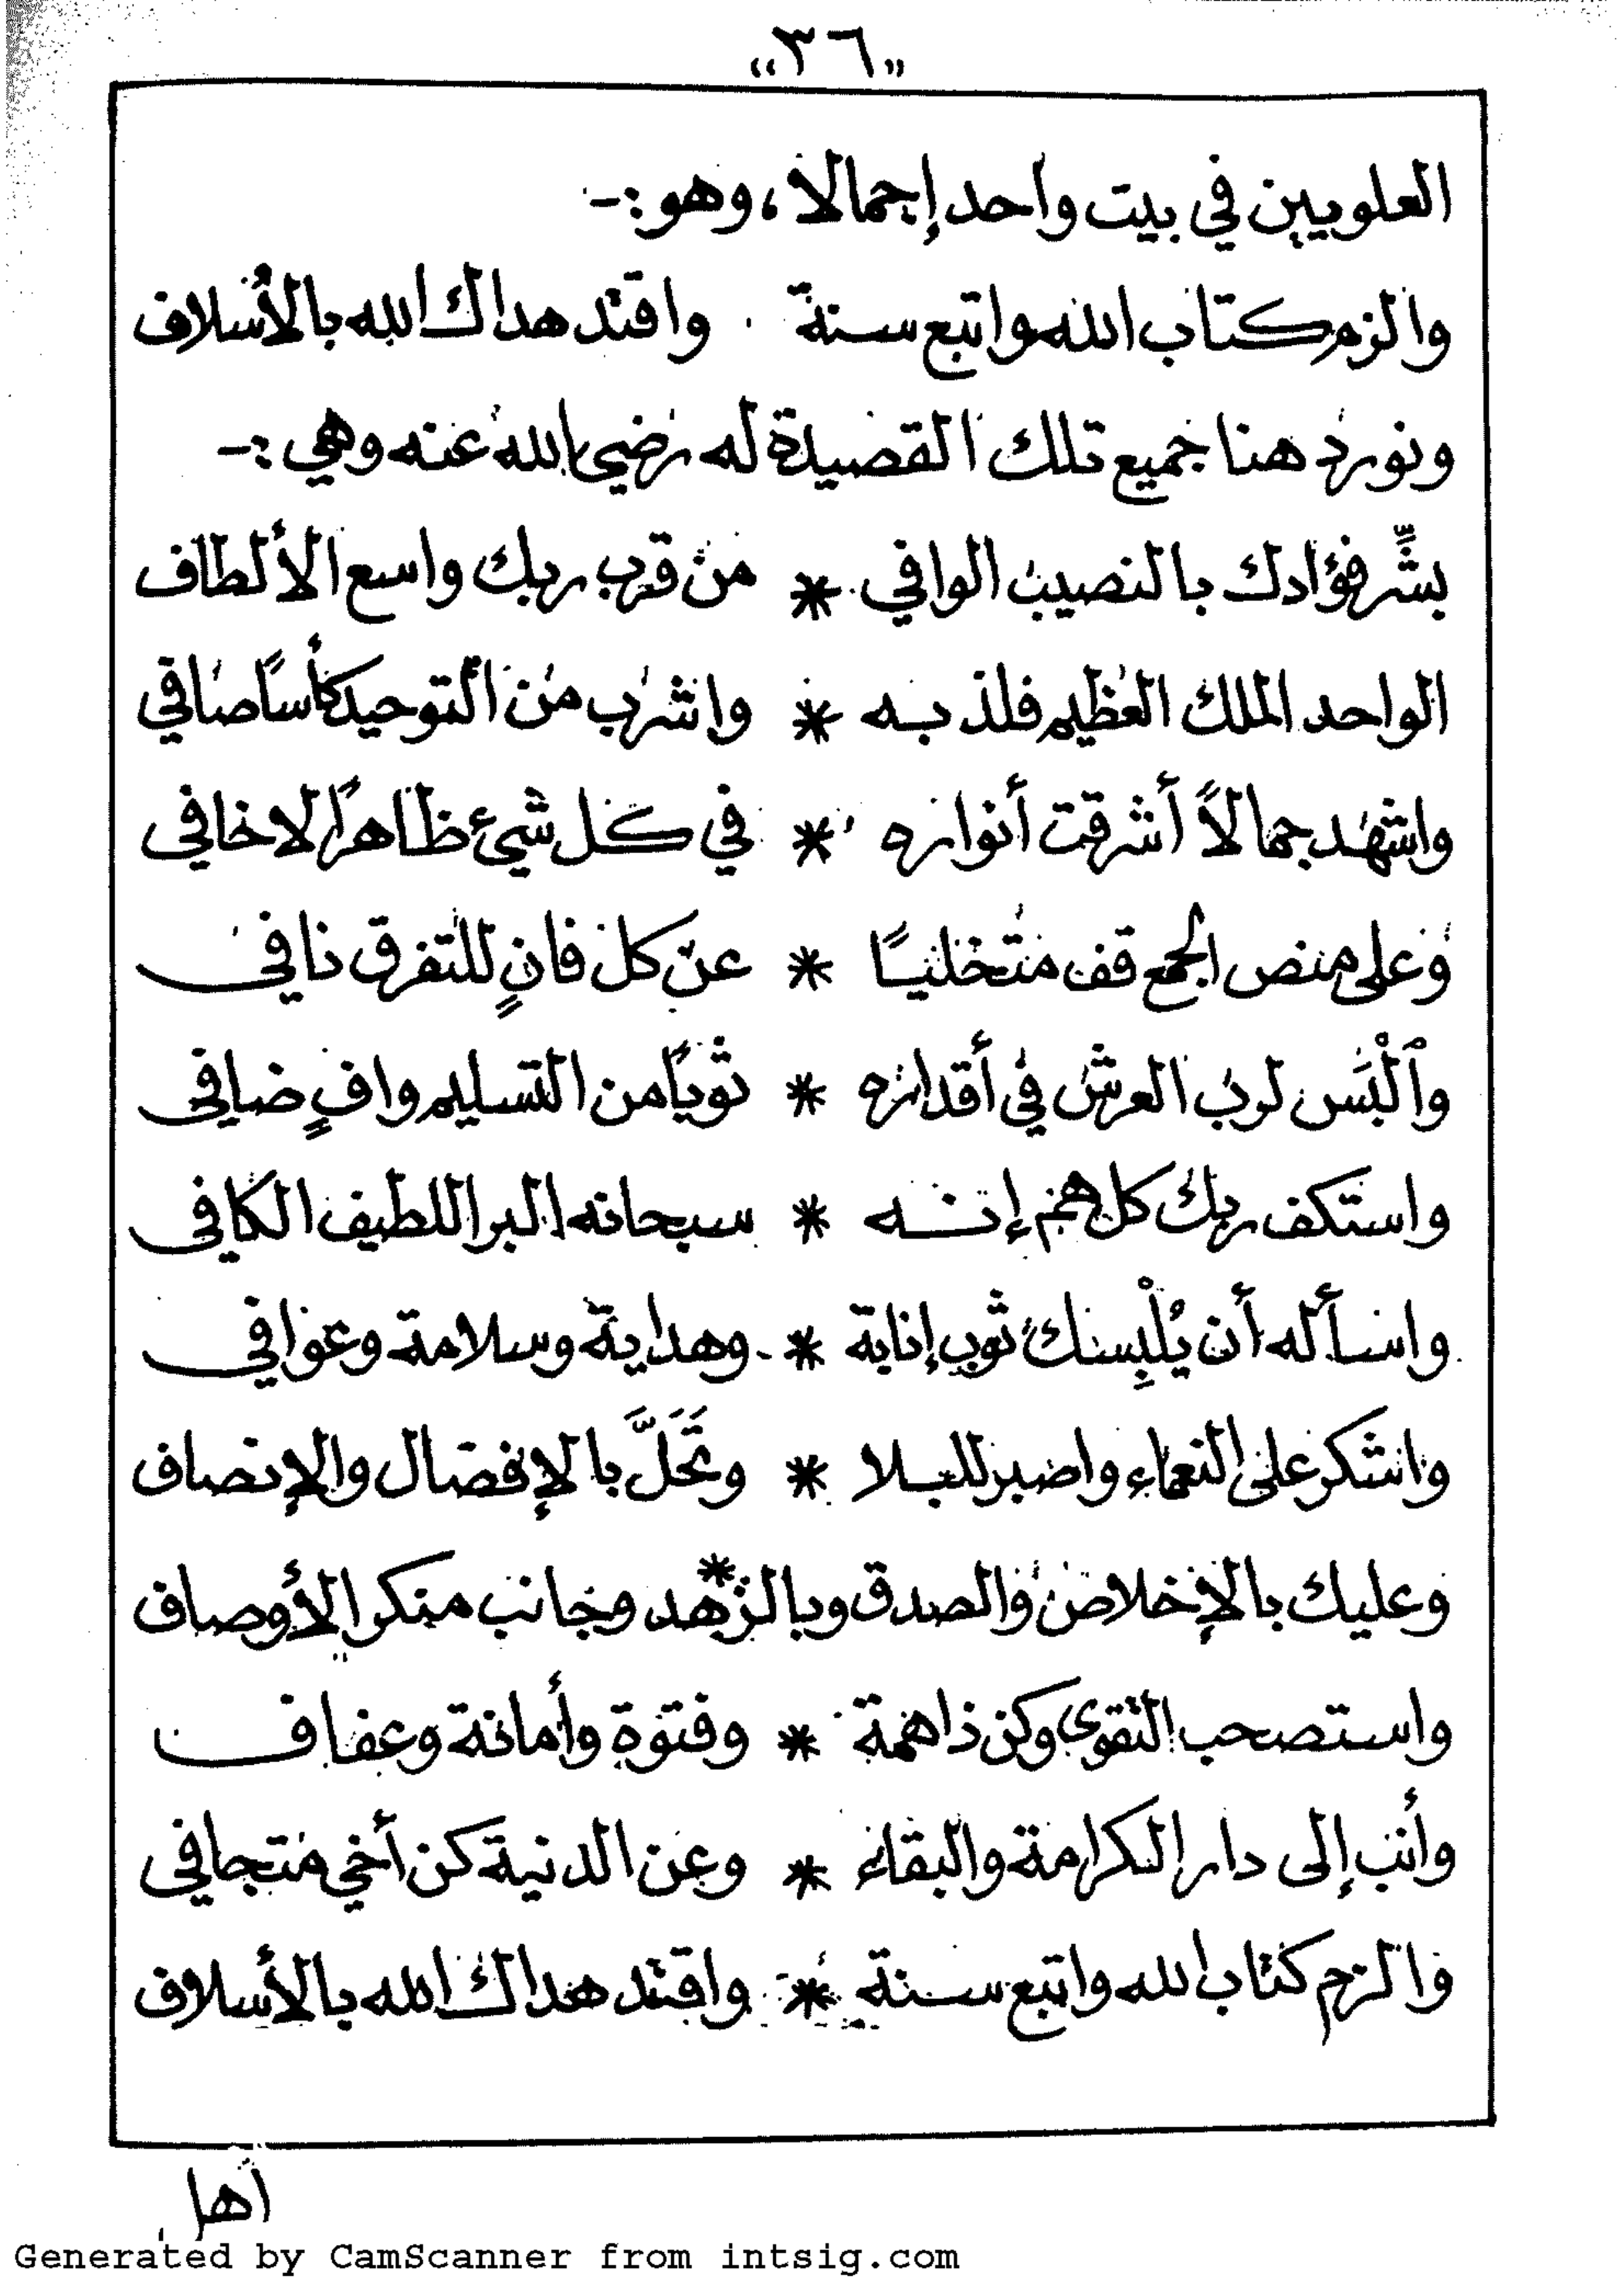 «٣٦»
العلويين في بيت واحد إجمالا، وهو :-
والزم كتاب الله واتبع سنة . واقتد هداك الله بالأسلاف
ونورد هنا جميع تلك القصيدة له رضي الله عنه وهي :-
بشِّر فؤادك بالنصيب الوافي * من قرب ربك واسع الألطاف
الواحد الملك العظيم فلذ به * واشرب من التوحيد كأسًا صافي
واشهد جمالاً أشرقت أنواره * في كل شيء ظاهرًا لا خافي
وعلى منص الجمع قف متخليًا * عن كل فانٍ للتفرق نافي
وٱلْبَس لرب العرش في أقداره * ثوبًا من التسليم وافٍ ضافي
واستكف ربك كل هم إنه * سبحانه البر اللطيف الكافي
واسأله أن يُلْبِسنك ثوب إنابة * وهداية وسلامة وعوافي
واشكر على النعماء واصبر للبلا * وتَحَلَّ بالإفضال والإنصاف
وعليك بالإخلاص والصدق وبالز*هد وجانب منكر الأوصاف
واستصحب التقوى وكن ذا همة * وفتوة وأمانة وعفاف
وأنب إلى دار الكرامة والبقاء * وعن الدنية كن أخي متجافي
والزم كتاب الله واتبع سنة * واقتد هداك الله بالأسلاف
Generated by CamScanner from intsig.com